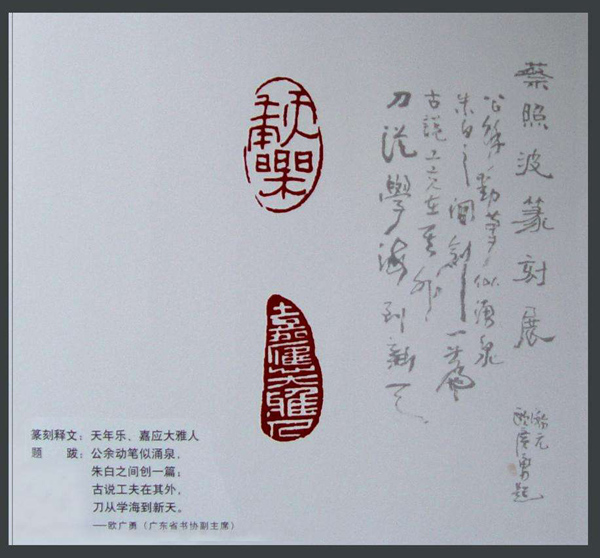 蔡照波篆刻展
公餘動筆似湧泉
朱白之間創一篇
古說工夫在其外
刀從學海到新天
歐廣勇題
天年樂
嘉應大雅人
篆刻释文：天年乐、嘉应大雅人
题　　跋：公余动笔似涌泉，
朱白之间创一篇；
古说工夫在其外，
刀从学海到新天。
——欧广勇（广东省书协副主席）